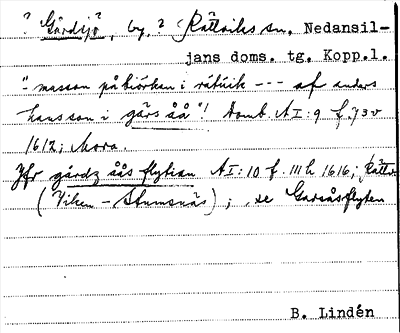 ? Gårdsjö, by. ? Rättviks sn. Nedansil-
jans doms. tg. Kopp.l.
"- masson på biörken i rätuik --- af anders
hansson i gårs åå"! Domb. AI:9 f. 73v
1612; Mora.
Jfr gårdz åås flytian AI:10 f. 111h 1616; Rättv.
(Viken - Stumsnäs); se Garsåsflyten
B. Lindén